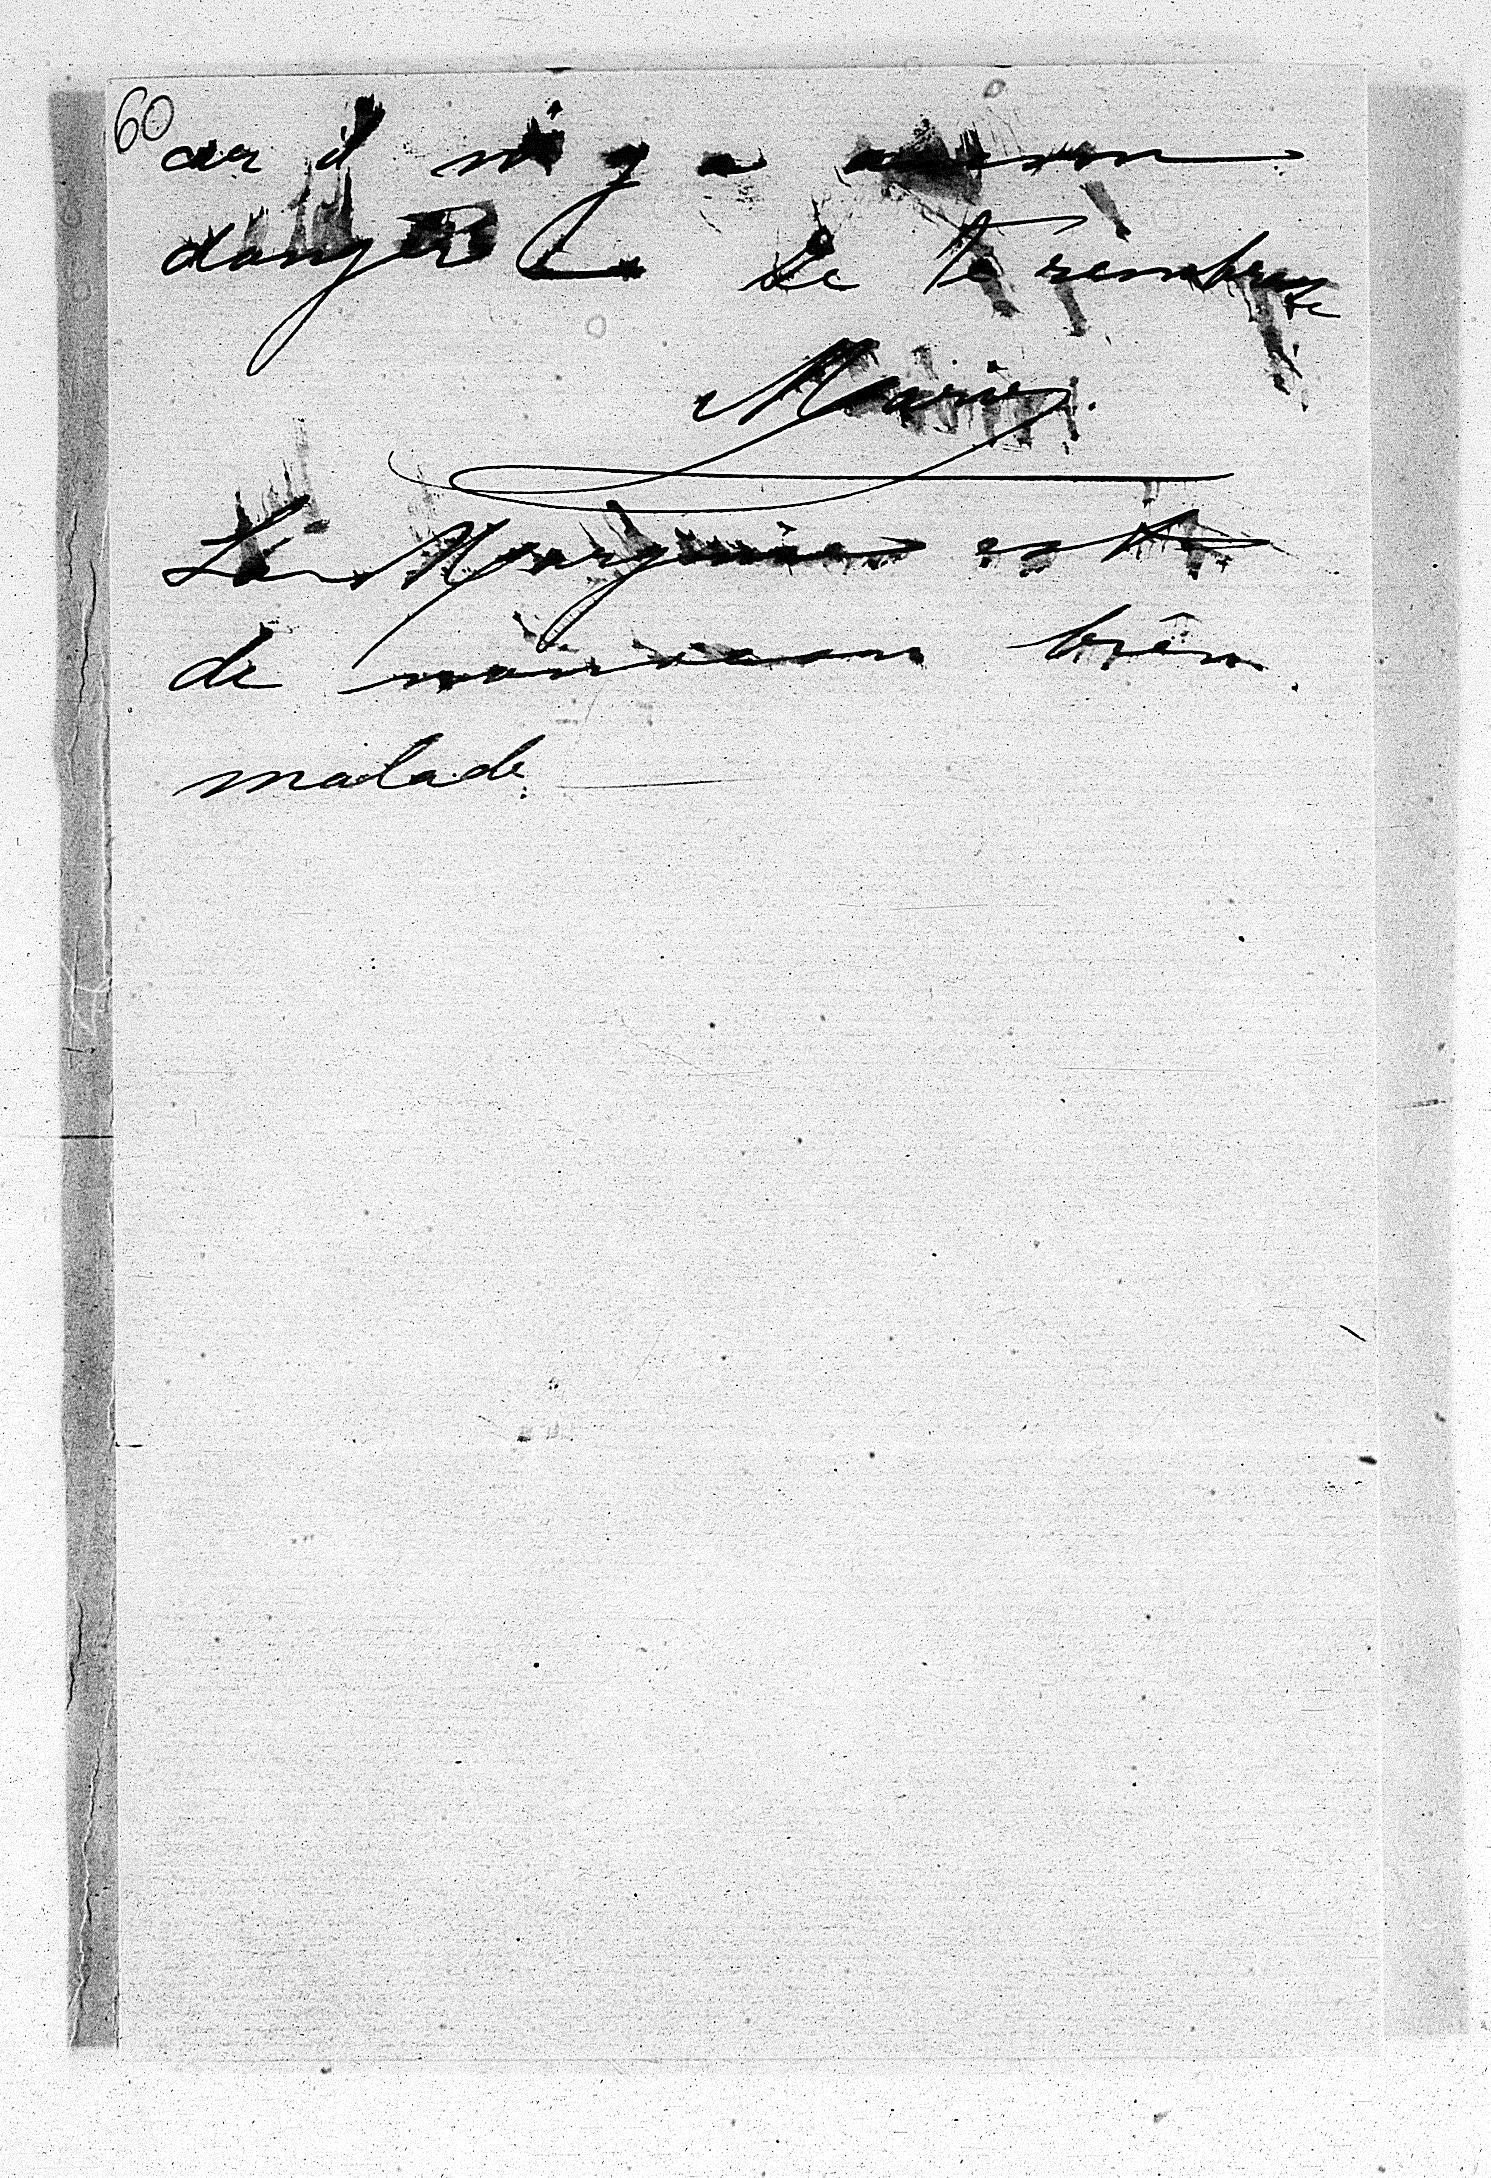 60
car il n'y a aucun
danger. Je t'embrasse
Marie.
La Marquise est
de nouveau bien
malade.